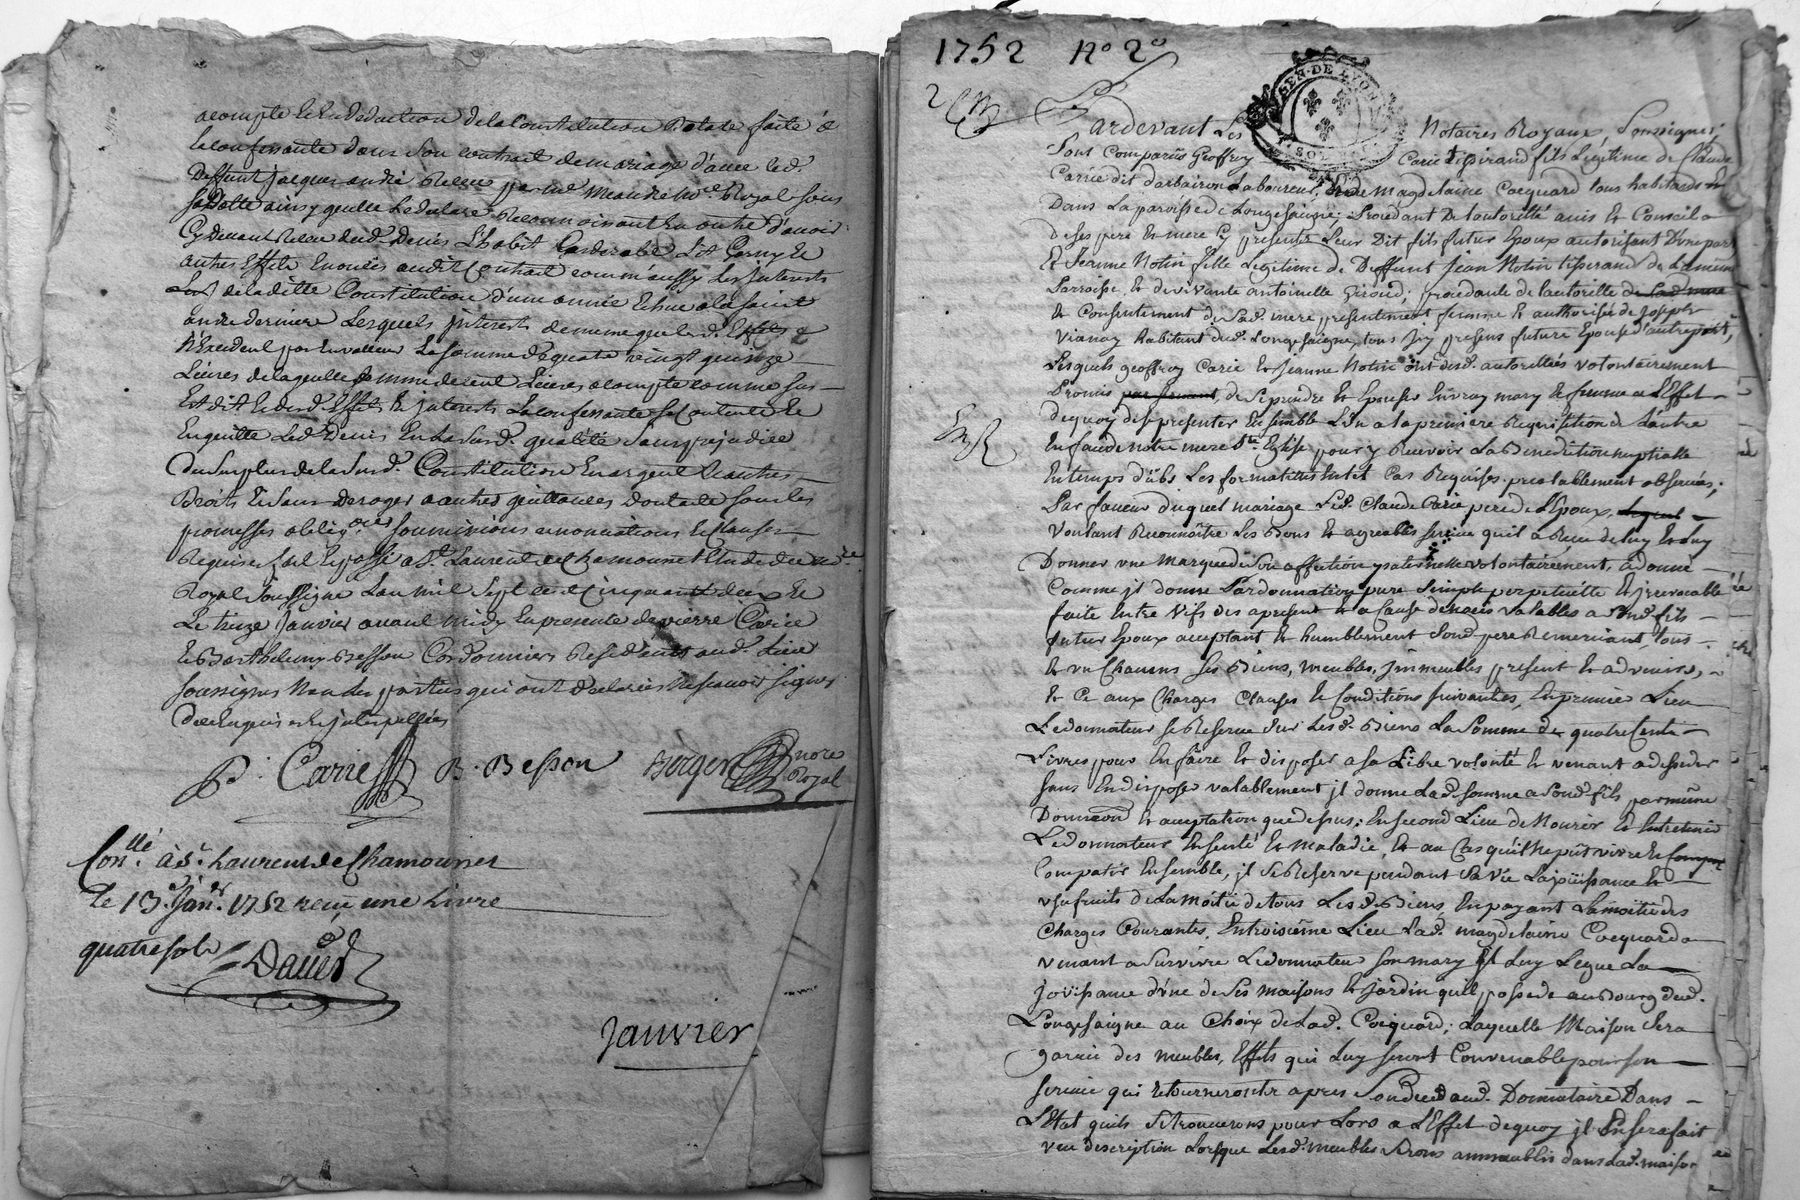 acompte et en deduction de la Constitution Dotale faite a
la confessante dans son contrat de mariage d'avec led.
Deffunt jacques andré Receu par me Royal sous
sa Datte ainsy qu'elle le declare Reconnoissant en outre d'avoir
Cy devant Receu dud. Denis L'habit Garderobe Lit Garny et
autres Effets Enoncés audit Contrat comm'aussy les jnterets
de laditte Constitution d'une année Echue a la saint
andre derniere Lesquels jnterests de meme que lesd. Effets
n'Excedent pas En valleur La somme de quatre vingt quinze
Livres de laquelle somme de cent Livres acompte comme sus
Est dit et desd. Effets et jnterets La confessante se Contente et
En quitte Led. Denis En la susd. qualité sans prejudice
du surplus de la susd. Constitution En argent et autres
Droits et sans Deroger a autres quittances Dont acte sous les
promesses obligons soumissions renonciations et clauses
Requises fait et passé a St. Laurent de Chamousset Etude du nore
Royal soussigné L'an mil sept cent Cinquante deux et
Le treize janvier avant midy En presence de pierre Carie
et Barthelemy Besson Cordonniers Residents aud. Lieu
soussignés Non les parties qui ont declarées Ne scavoir signer
de ce Enquises et jnterpellées
P. Carie B. Besson Berger nore Royal
Conllé à St. Laurent de Chamousset
le 13e janr. 1752 receu une Livre
quatre sols
David
janvier
1752 No 2o
2
GEN. DE LYON
Pardevant Les Notaires Royaux, soussignés,
sont comparus Geoffroy Carie tisserand fils Légitime de Claude
Carie dit darbairon Laboureur, et de Magdelaine Cocquard tous habitants
Dans La paroisse de Longessaigne; Procedant De l'autorité avis et Conseil
de ses pere et mere Cy presents Leur Dit fils futur Epoux autorisant D'une part
Et Jeanne Notin fille Legitime de Deffunt jean Notin tisserand de La meme
Parroisse et de vivante antoinette Giroud; procedante de l'autorité de sad. mere
et Consentement de sad. mere presentement femme et authorisée de joseph
vianay habitant dud. Longessaigne, tous jcy presens future Epouse d'autre part,
Lesquels geoffroy Carie et jeanne Notin ont desd. autorités volontairement
Promis, de se prendre et Epouser En vray mary et femme a L'Effet
de quoy de se presenter Ensemble L'un a la premiere Requisition de L'autre
En face de notre mere Ste. Eglise pour y Recevoir La Benediction nuptialle
En temps dub Les formalités En tel Cas Requises prealablement observées;
Par faveur duquel mariage Led. Claude Carie pere de L'Epoux, lequel
voulant Reconnoître Les Bons et agreables service qu'il a Receu de luy Et luy
Donner vne Marque de son affection paternelle volontairement, a donné
Comme jl donne Par donnation pure simple perpetuelle et jrrevocable
faite Entre vifs des apresent et a Cause de noces valables a sond. fils
futur Epoux acceptant et humblement sond. pere Remerciant, tous
et vn Chacuns ses Biens, meubles, jmmeubles present et advenirs,
et Ce aux Charges Clauses et Conditions suivantes, En premier Lieu
Le donnateur se Reserve sur Lesd. Biens La somme de quatre Cents
Livres pour En faire et disposer a sa Libre volonté et venant a deceder
sans En disposer valablement jl donne Lad. somme a sond. fils par même
Donnaõn et acceptation que dessus; En second Lieu de Nourir et Entretenir
Le donnateur En santé et maladie, et au Cas qu'il ne put vivre et
Compatir Ensemble, jl se Reserve pendant sa vie La joüissance et
vsufruits de La Moitié de tous Lesd. Biens En payant La moitié des
Charges Courantes, En troisième Lieu Lad. magdelaine Cocquard
venant a survivre Le donnateur son mary jl Luy Legue La
joüissance d'vne de ses maisons et jardin qu'il possede au Bourg dud.
Longessaigne au Choix de Lad. Cocquard; Laquelle Maison sera
garnie des meubles, Effets qui Luy seront Convenable pour son
service qui retourneront apres son deced aud. Donnataire Dans
L'Etat qu'ils se trouverons pour Lors a L'Effet de quoy jl En sera fait
vne description Lorsque Lesd. meubles serons ammeublés dans Lad. maison